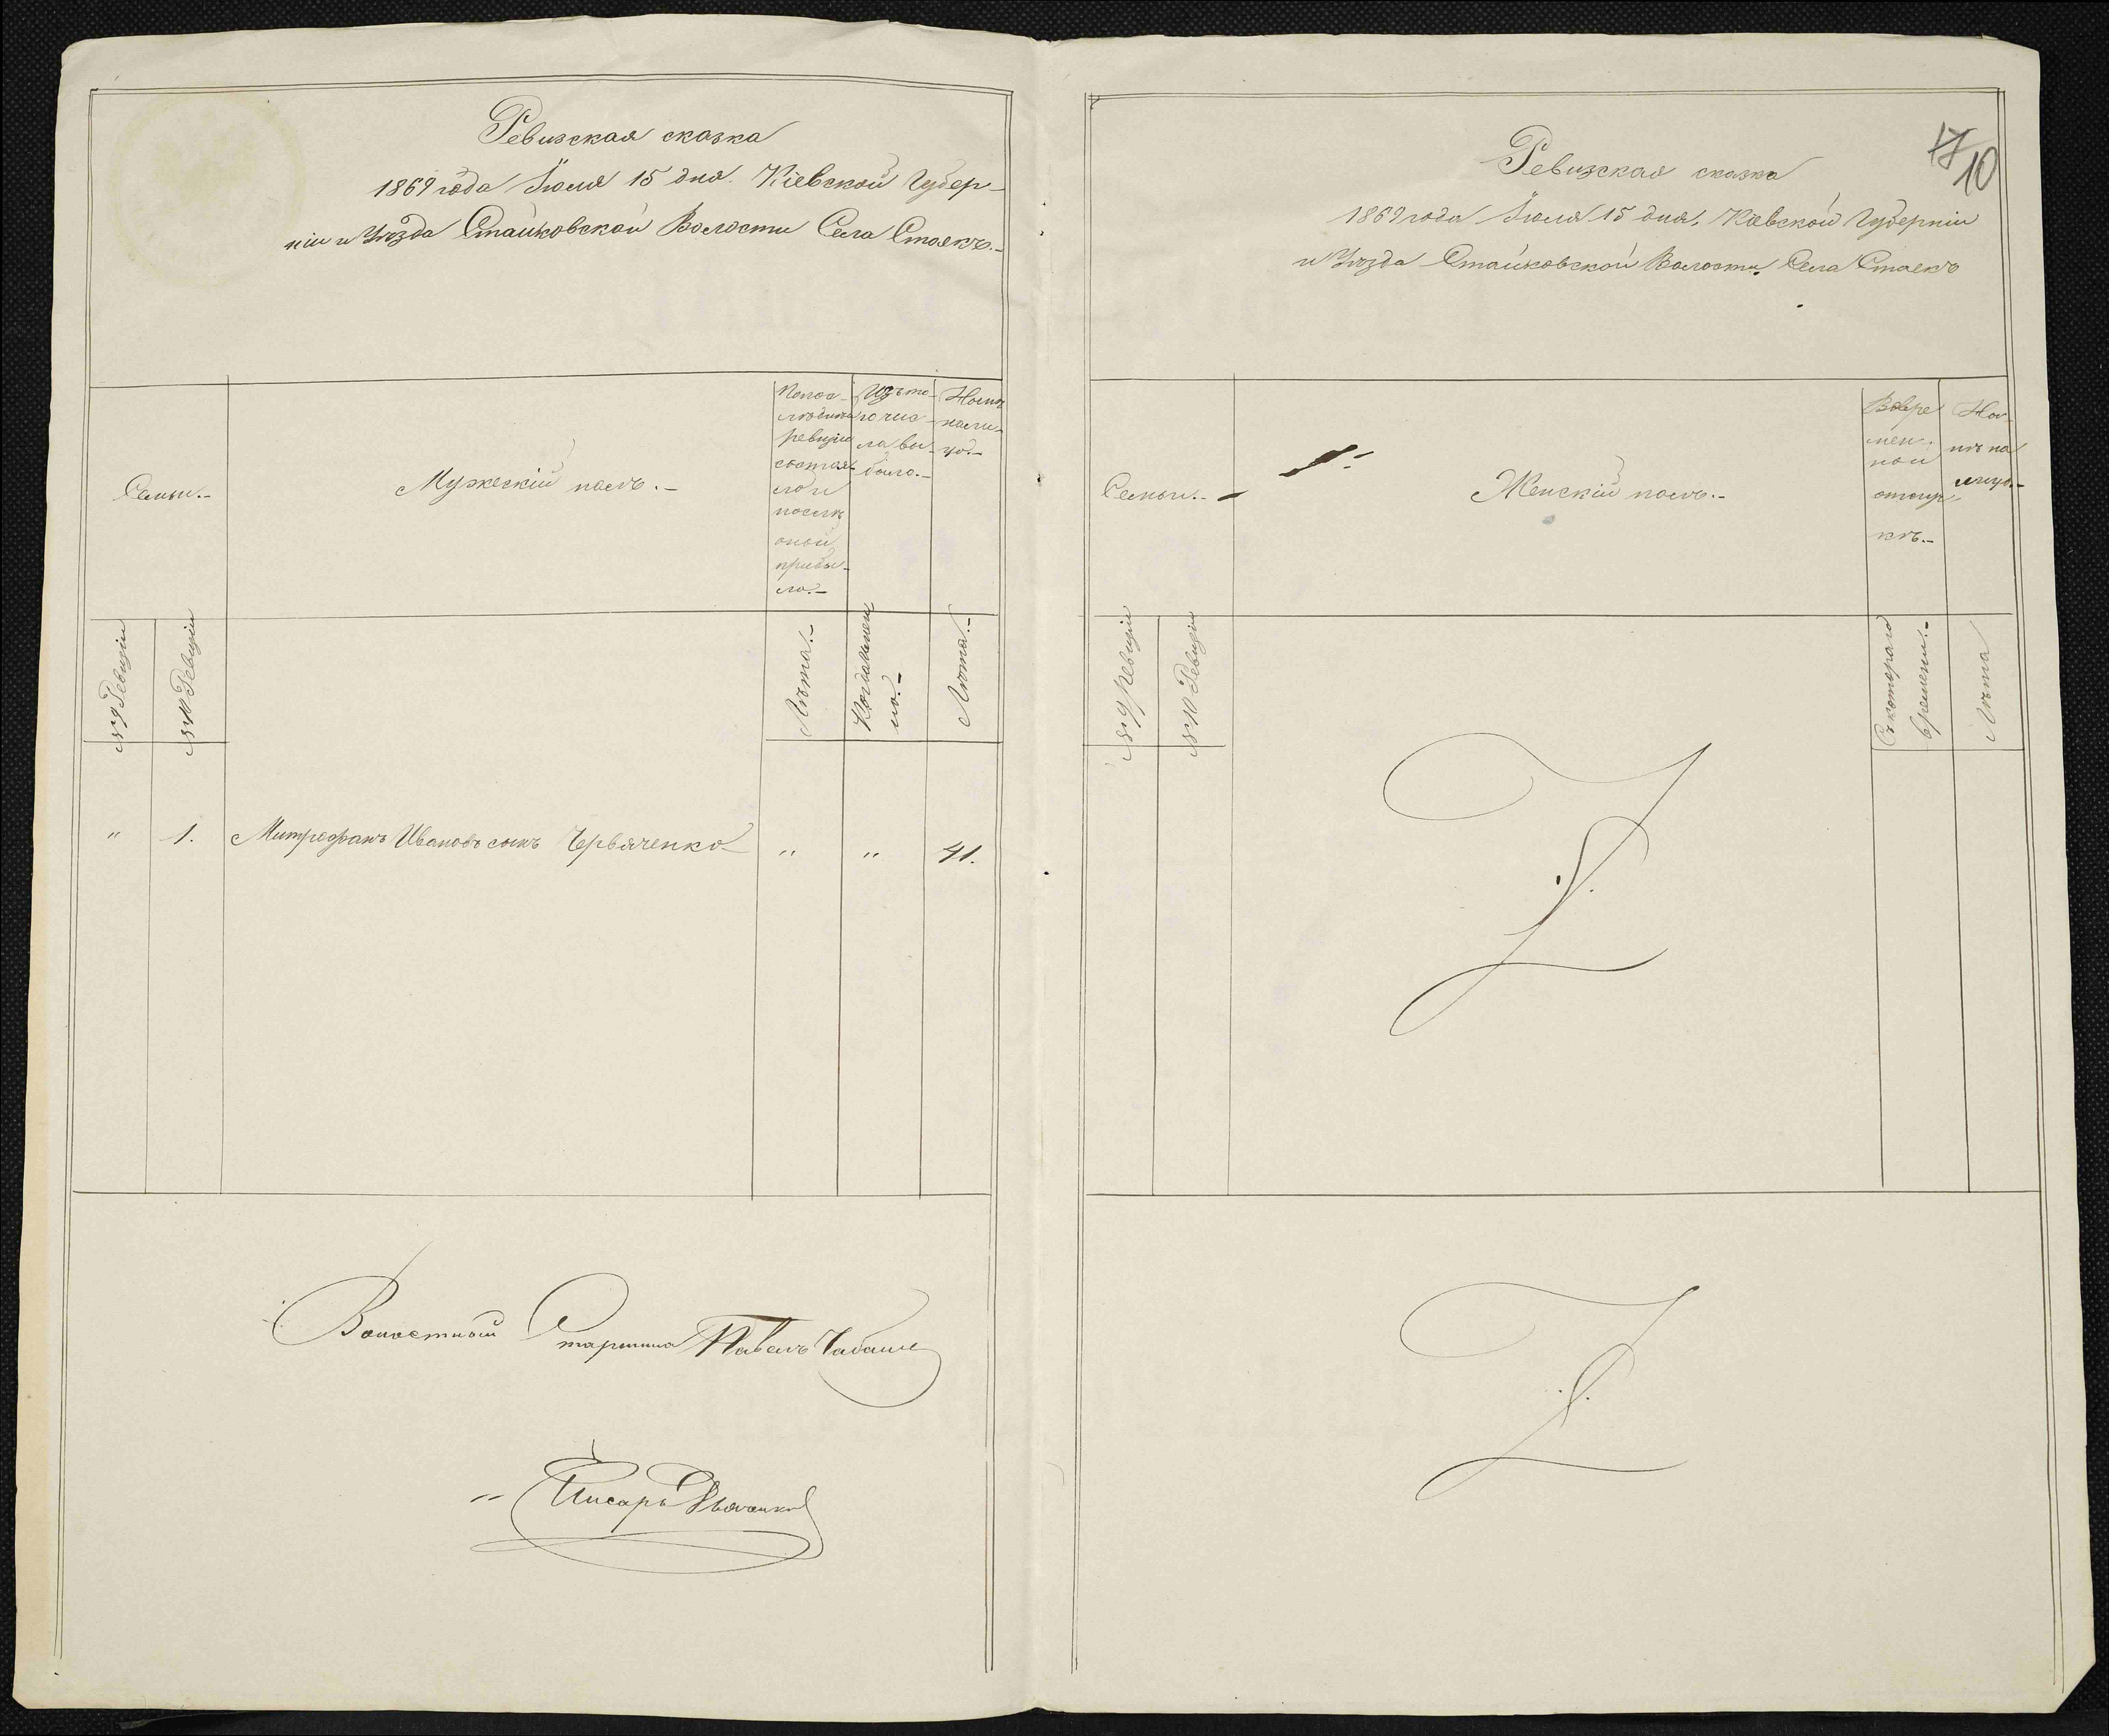 Ревизская сказка
1869 года Іюля 15 дня. Кіевской Губер-
ніи и Уѣзда Стайковской Волости Села Стаекъ.-
Семьи.-
Мужескій полъ.-
По пос-
лѣдней
ревизіи
состоя-
ло и
послѣ
оной
прибы-
ло.-
Изъ то-
го чис-
ла вы-
было.-
Нынѣ
на ли-
цо.-
№ 9 Ревизіи
№ 10 Ревизіи
Лѣта.-
Когда имен-
но.-
Лѣта.-
" 1. Митрофанъ Ивановъ сынъ Червяченко " " 41.
Волостный Старшина Павелъ
Писарь
17
10
Ревизская сказка
1869 года Іюля 15 дня, Кіевской Губерніи
и Уѣзда Стайковской Волости Села Стаекъ
Семьи.-
Женскій полъ.-
Во вре
мен-
ной
отлуч-
кѣ.-
Ны-
нѣ на
лицо.-
№ 9 Ревизіи
№ 10 Ревизіи
Съ котораго
времени.-
Лѣта